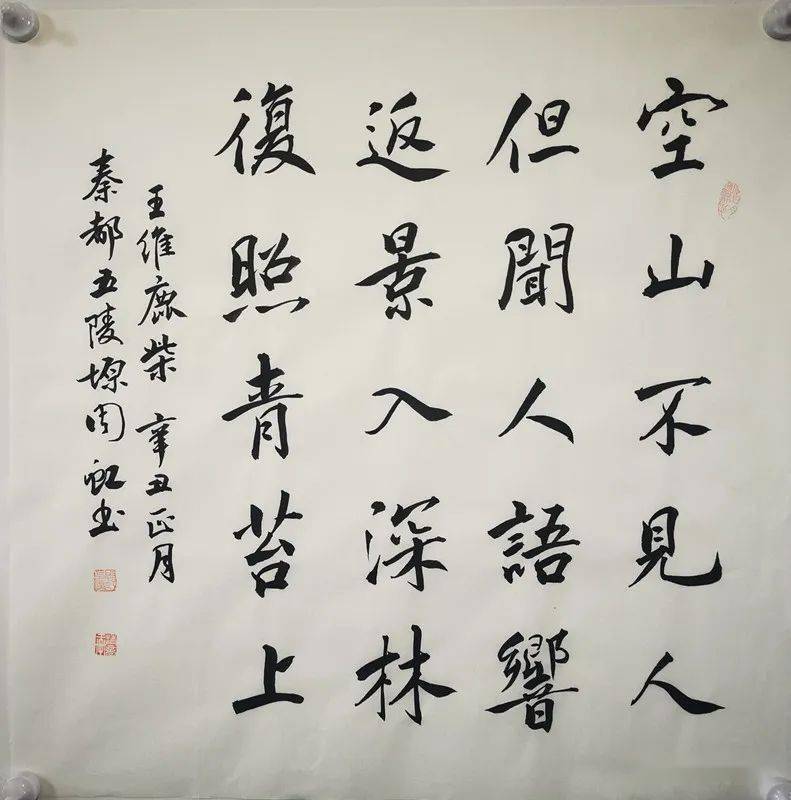 空山不見人
但聞人語響
返景入深林
復照青苔上
王維鹿柴 辛丑正月
秦都五陵塬周虹書